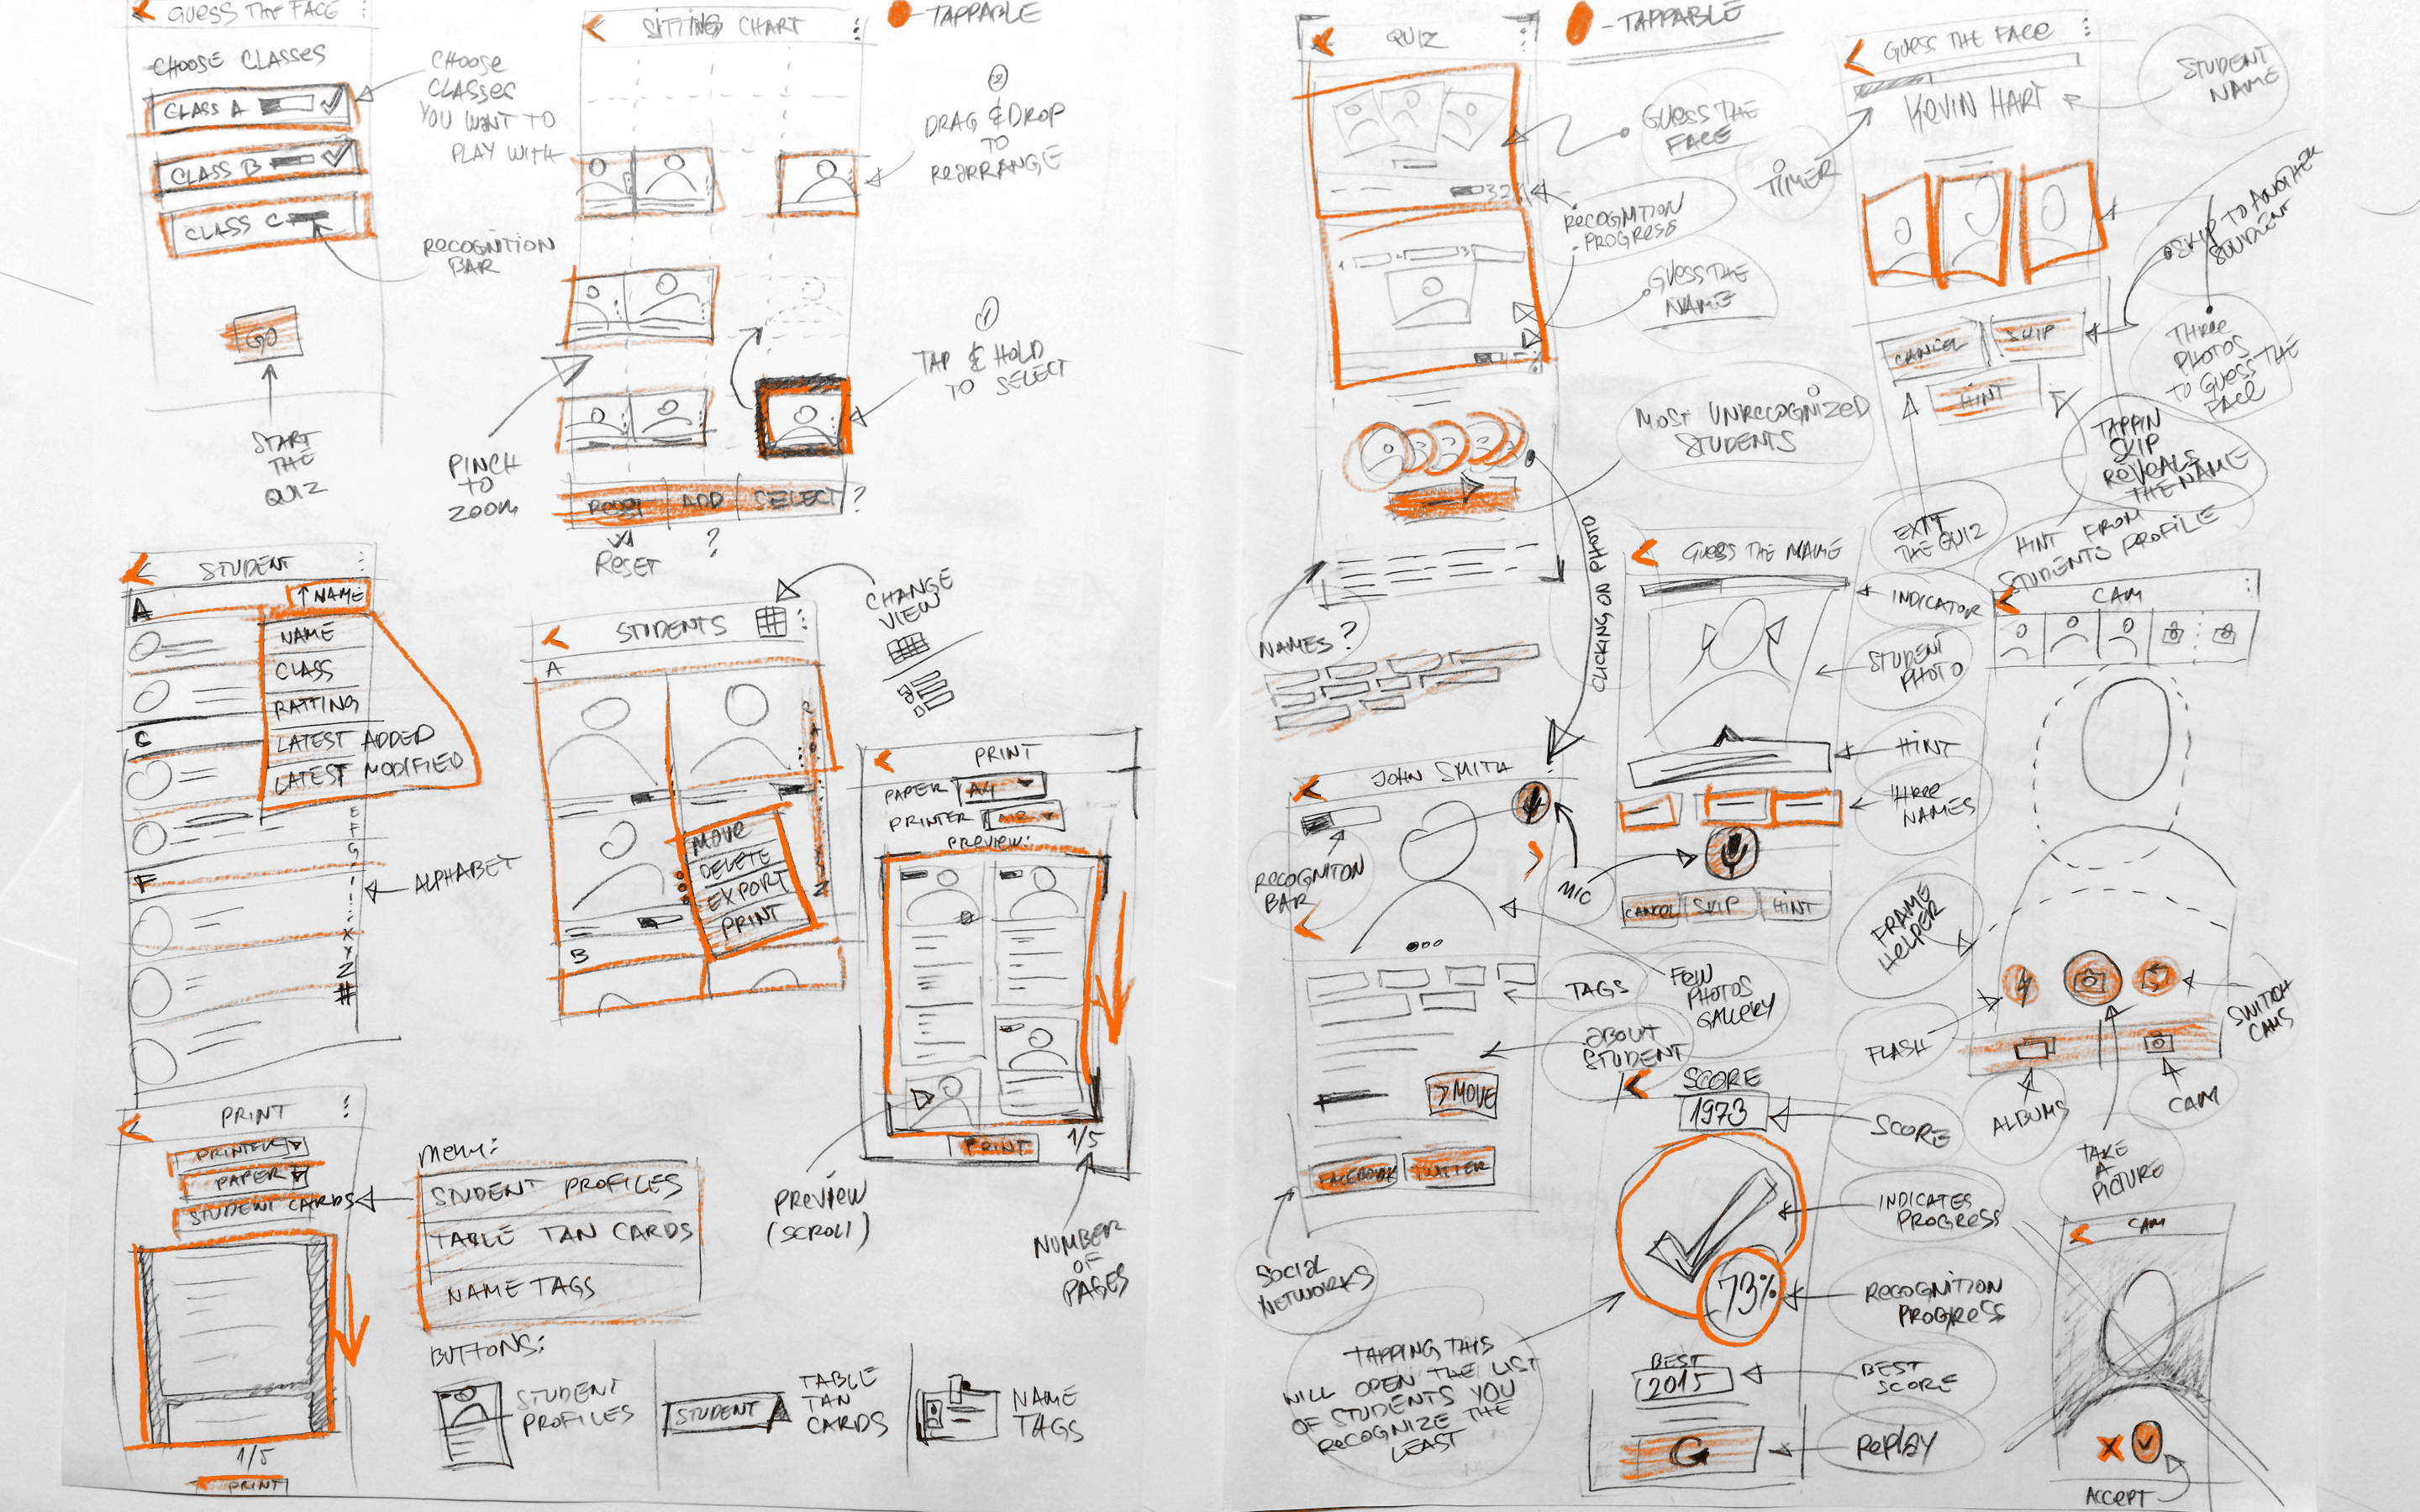 GUESS THE FACE
CHOOSE CLASSES
CLASS A
CLASS B
CLASS C
GO
CHOOSE
CLASSES
YOU WANT TO
PLAY WITH
RECOGNITION
BAR
START
THE
QUIZ
SITTING CHART
- TAPPABLE
2
DRAG & DROP
TO
REARRANGE
1
TAP & HOLD
TO SELECT
PINCH
TO
ZOOM
RESET
ADD
SELECT
?
RESET
?
STUDENT
A
↑ NAME
NAME
CLASS
RATTING
LATEST ADDED
LATEST MODIFIED
C
F
E
F
G
X
Y
Z
#
ALPHABET
STUDENTS
A
B
CHANGE
VIEW
MOVE
DELETE
EXPORT
PRINT
PRINT
PAPER A4
PRINTER
PREVIEW:
PRINT
1/5
PREVIEW
(SCROLL)
NUMBER
OF
PAGES
PRINT
PRINTER
PAPER
STUDENT CARDS
1/5
PRINT
MENU:
STUDENT PROFILES
TABLE TAN CARDS
NAME TAGS
BUTTONS:
STUDENT
PROFILES
STUDENT
TABLE
TAN
CARDS
NAME
TAGS
QUIZ
- TAPPABLE
GUESS THE
FACE
RECOGNITION
PROGRESS
GUESS THE
NAME
MOST UNRECOGNIZED
STUDENTS
NAMES?
CLICKING ON PHOTO
GUESS THE FACE
KEVIN HART
STUDENT
NAME
TIMER
SKIP TO ANOTHER
STUDENT
CANCEL
SKIP
HINT
THREE
PHOTOS
TO GUESS THE
FACE
TAPPIN
SKIP
REVEALS
THE NAME
EXIT
THE QUIZ
HINT FROM
STUDENTS PROFILE
GUESS THE NAME
INDICATOR
STUDENT
PHOTO
HINT
THREE
NAMES
MIC
CANCEL
SKIP
HINT
JOHN SMITH
RECOGNITON
BAR
TAGS
FEW
PHOTOS
GALLERY
ABOUT
STUDENT
> MOVE
FACEBOOK
TWITTER
SOCIAL
NETWORKS
CAM
FRAME
HELPER
FLASH
SWITCH
CAMS
ALBUMS
CAM
TAKE
A
PICTURE
SCORE
1973
SCORE
INDICATES
PROGRESS
73%
RECOGNITION
PROGRESS
TAPPING THIS
WILL OPEN THE LIST
OF STUDENTS YOU
RECOGNIZE THE
LEAST
BEST
2015
BEST
SCORE
REPLAY
CAM
ACCEPT